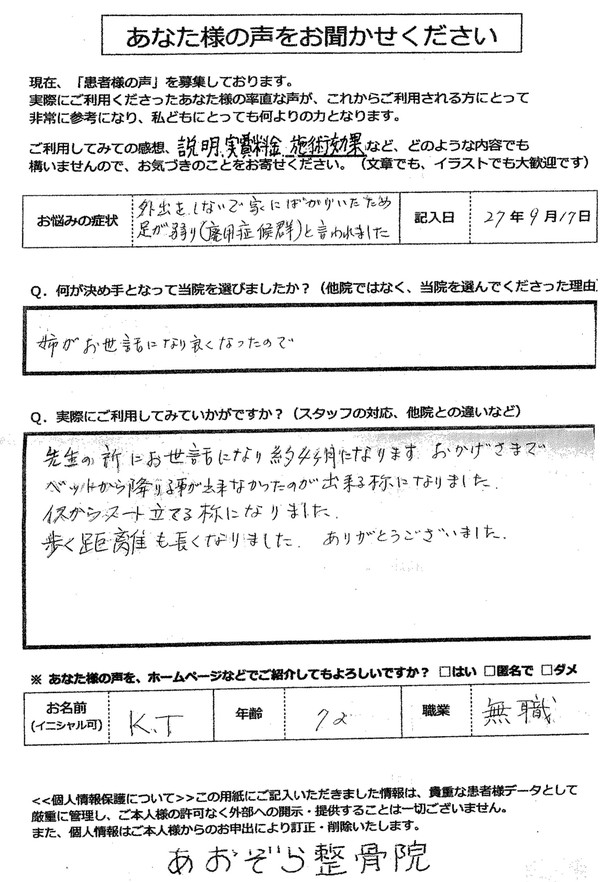 あなた様の声をお聞かせください
現在、「患者様の声」を募集しております。
実際にご利用くださったあなた様の率直な声が、これからご利用される方にとって
非常に参考になり、私どもにとっても何よりの力となります。
ご利用してみての感想、説明、実費料金、施術効果など、どのような内容でも
構いませんので、お気づきのことをお寄せください。（文章でも、イラストでも大歓迎です）
お悩みの症状
外出をしないで家にばかりいたため
足が弱り(廃用症候群)と言われました
記入日
27年9月17日
Q．何が決め手となって当院を選びましたか？（他院ではなく、当院を選んでくださった理由）
姉がお世話になり良くなったので
Q．実際にご利用してみていかがですか？（スタッフの対応、他院との違いなど）
先生の所にお世話になり約4ヶ月になります。おかげさまで
ベットから降りる事が出来なかったのが出来る様になりました。
スート立てる様になりました。
歩く距離も長くなりました。ありがとうございました。
※ あなた様の声を、ホームページなどでご紹介してもよろしいですか？ □はい □匿名で □ダメ
お名前
(イニシャル可)
K.T
年齢
72
職業
無職
<<個人情報保護について>>この用紙にご記入いただきました情報は、貴重な患者様データとして
厳重に管理し、ご本人様の許可なく外部への開示・提供することは一切ございません。
また、個人情報はご本人様からのお申出により訂正・削除いたします。
あおぞら整骨院